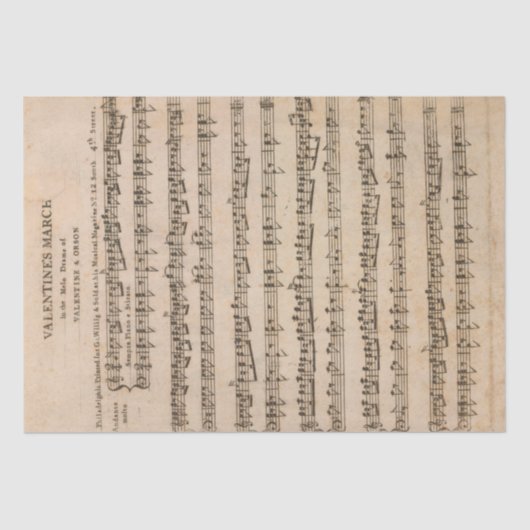 VALENTINES MARCH
in the Melo Drame of
VALENTINE & ORSON
Philadelphia Printed for G. Willig & Sold at his Musical Magazine No. 12 South 4th Street.
Andante
molto
Sempre Piano e